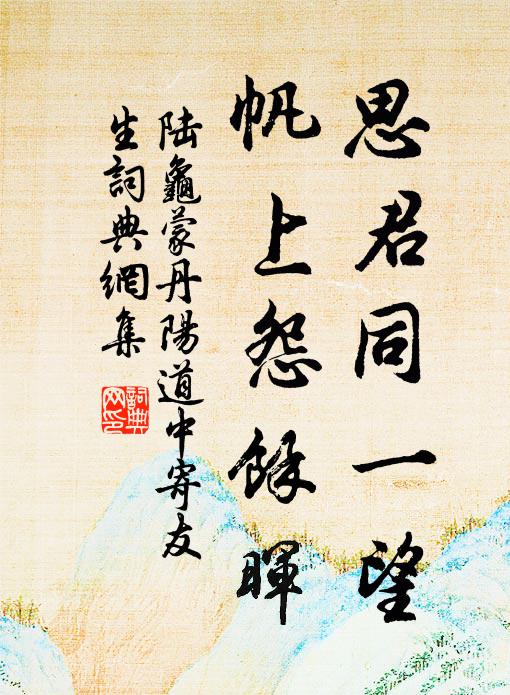 思君同一望
帆上怨餘暉
陆龜蒙丹陽道中寄友
生詞典網集
詞典
网印